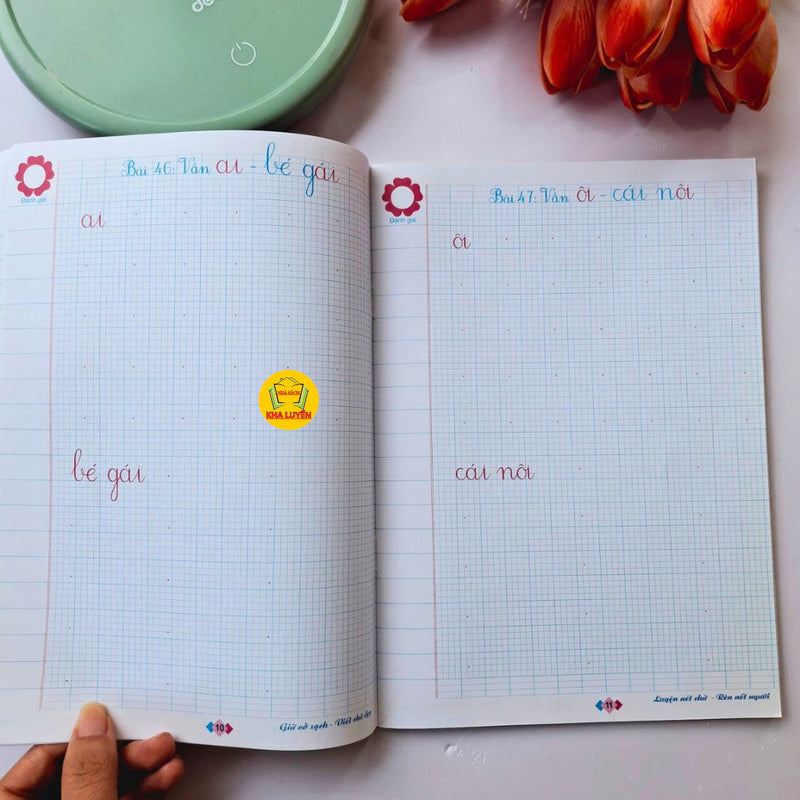 Bài 46: Vần ai - bé gái
Đánh giá
ai
NHÀ SÁCH
KHA LUYẾN
bé gái
10
Giữ vở sạch - Viết chữ đẹp
Bài 47: Vần ôi - cái nôi
Đánh giá
ôi
cái nôi
11
Luyện nét chữ - Rèn nết người